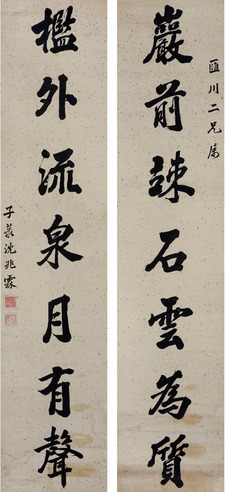 匯川二兄属
巖前疎石雲為質
檻外流泉月有聲
子菉沈兆霖